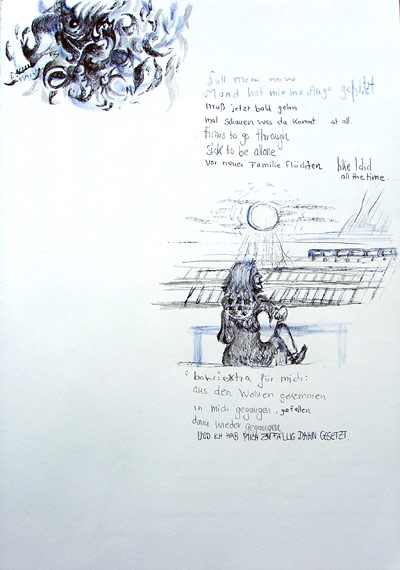 full moon now
Mond hat mir ins Auge geblitzt
muß jetzt bald gehn
mal schauen was da kommt at all.
times to go through
sick to be allone
vor neuer Familie flüchten like I did
all the time...
extra für mich:
aus den Wolken gekommen
in mich gegangen, gefallen
dann wieder gegangen
UND ICH HAB MICH ZUFÄLLIG DAHIN GESETZT.